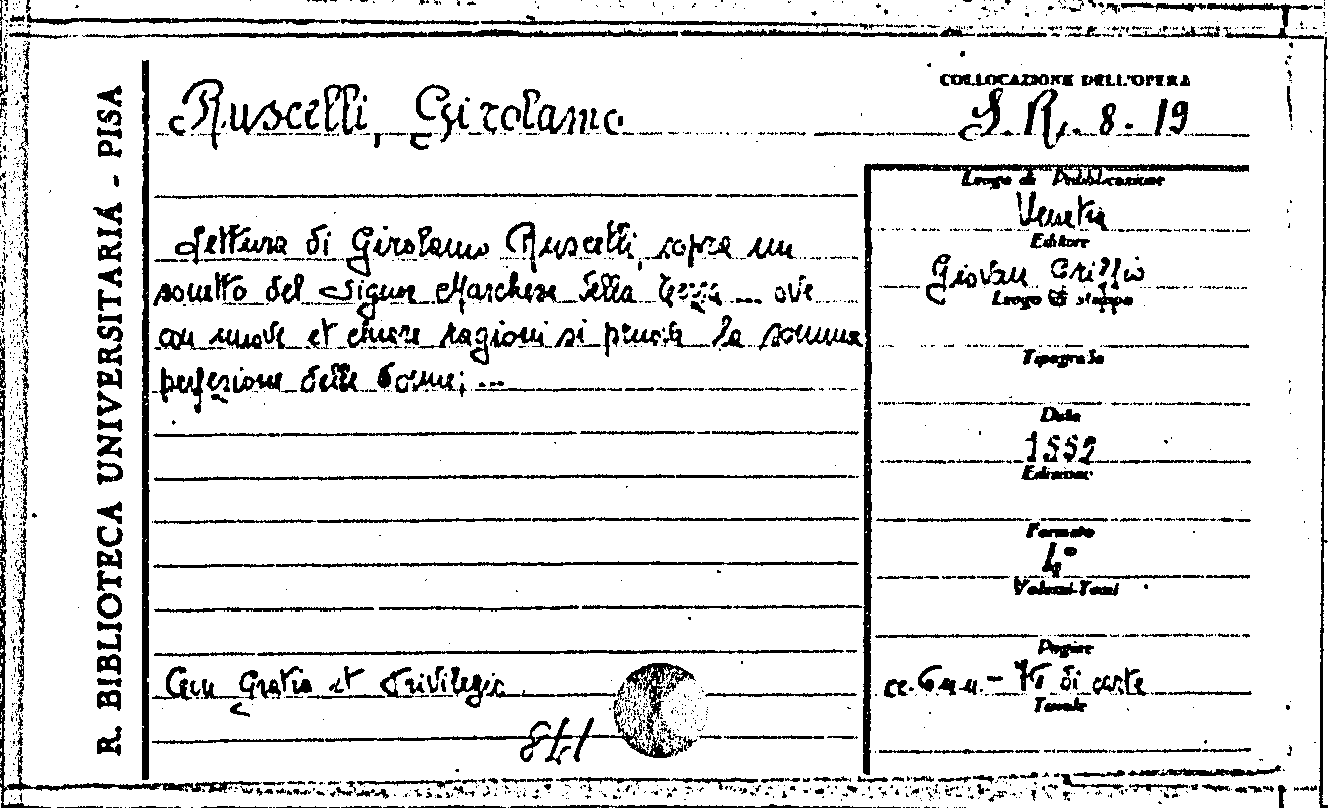 R. BIBLIOTECA UNIVERSITARIA - PISA
Ruscelli, Girolamo
COLLOCAZIONE DELL'OPERA
S. R. 8. 19
Lettura di Girolamo Ruscelli, sopra un
sonetto del Signor Marchese della Terza ... ove
con nuove et chiare ragioni si pruova la somma
perfezione delle donne; ...
Con Gratia et Privilegio
Luogo di Pubblicazione
Venetia
Editore
Giovan Griffio
Luogo di stampa
Tipografo
Data
1552
Edizione
Formato
4°
Volumi-Tomi
Pagine
cc. 6 n.n. - 76 di carte
Tavole